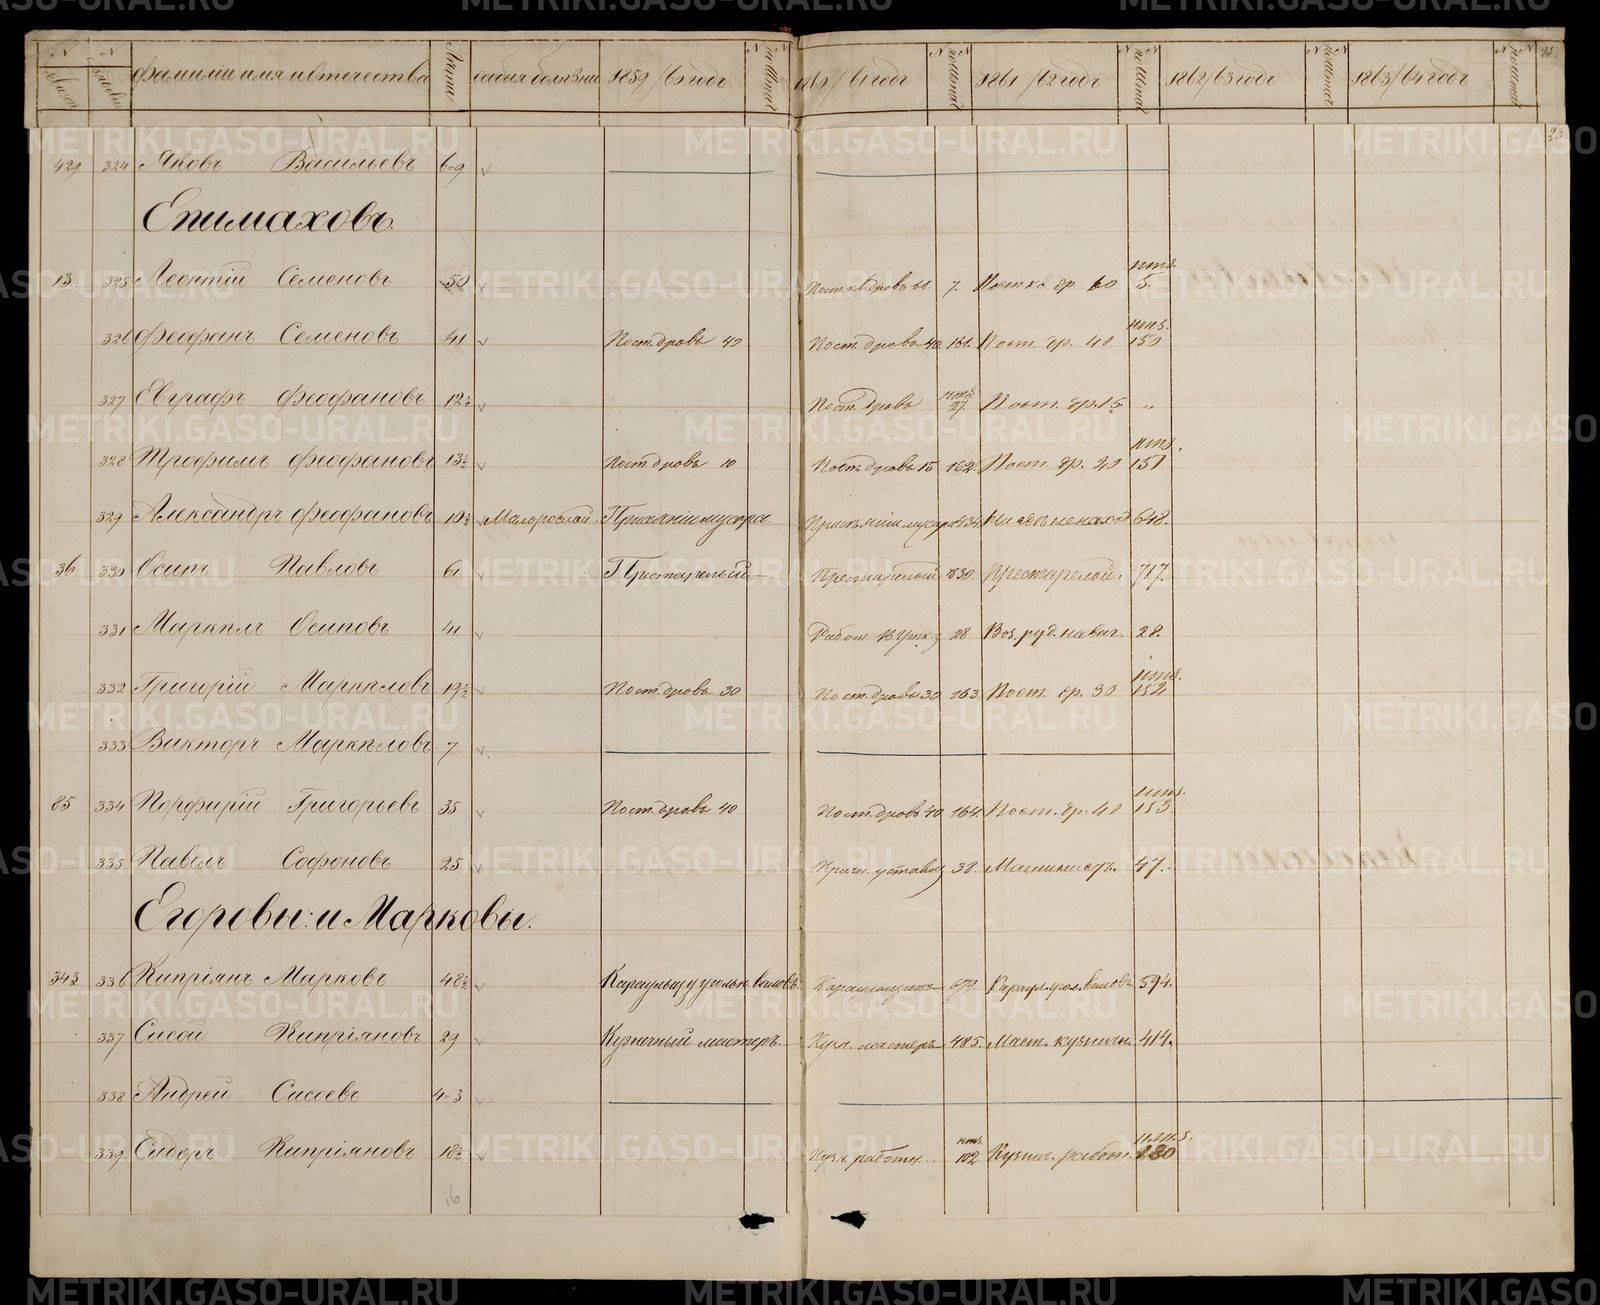 фамилии имя и отечества Лѣта какая болѣзни 1859/60 годъ по Штат 1860/61 годъ по Штат 1861/62 годъ по Штат 1862/63 годъ по Штат 1863/64 годъ по Штат
23
429 324 Яковъ Васильевъ 6-9
Епимаховъ.
13 325 Леонтій Семеновъ 50 Пост. кв. дровъ 7. Пост. кв. др. 60 5.
326 Феофанъ Семеновъ 41 Пост. дровъ 40 Пост. дровъ 40 161. Пост. др. 40 150
327 Евграфъ Феофановъ 12½ Пост. дровъ 27. Пост. др. 15 „
328 Трофимъ Феофановъ 13½ Пост. дровъ 10 Пост. дровъ 15 162 Пост. др. 20 151
329 Александръ Феофановъ 10½ Малорослый Присяніи мусора 648.
36 330 Осипъ Павловъ 61 Престарелый Престарелый 830. Престарелой. 717.
331 Маркелъ Осиповъ 41 Работ. 28 Воз. руд. на выг. 28.
332 Григорій Маркеловъ 19½ Пост. дровъ 30 Пост. дровъ 30 163 Пост. др. 30 152.
333 Викторъ Маркеловъ 7
85 334 Порфирій Григорьевъ 35 Пост. дровъ 40 Пост. дровъ 40 164. Пост. др. 40 153.
335 Павелъ Софоновъ 25 Кричн. уставщ 38. Машинистъ. 47.
Егоровы: и Марковы.
343 336 Кипріянъ Марковъ 48½ Караульщ у угольн. валовъ Караульщикъ 679. Караул. угол. валовъ 594.
337 Сисой Кипріяновъ 29 Кузнечный мастеръ. Кузн. мастеръ 485. Маст. кузничн. 414.
338 Андрей Сисоевъ 4-3
339 Сидоръ Кипріяновъ 18½ Кузн. работн. 102 Кузнич. работ. 280
16
METRIKI.GASO-URAL.RU